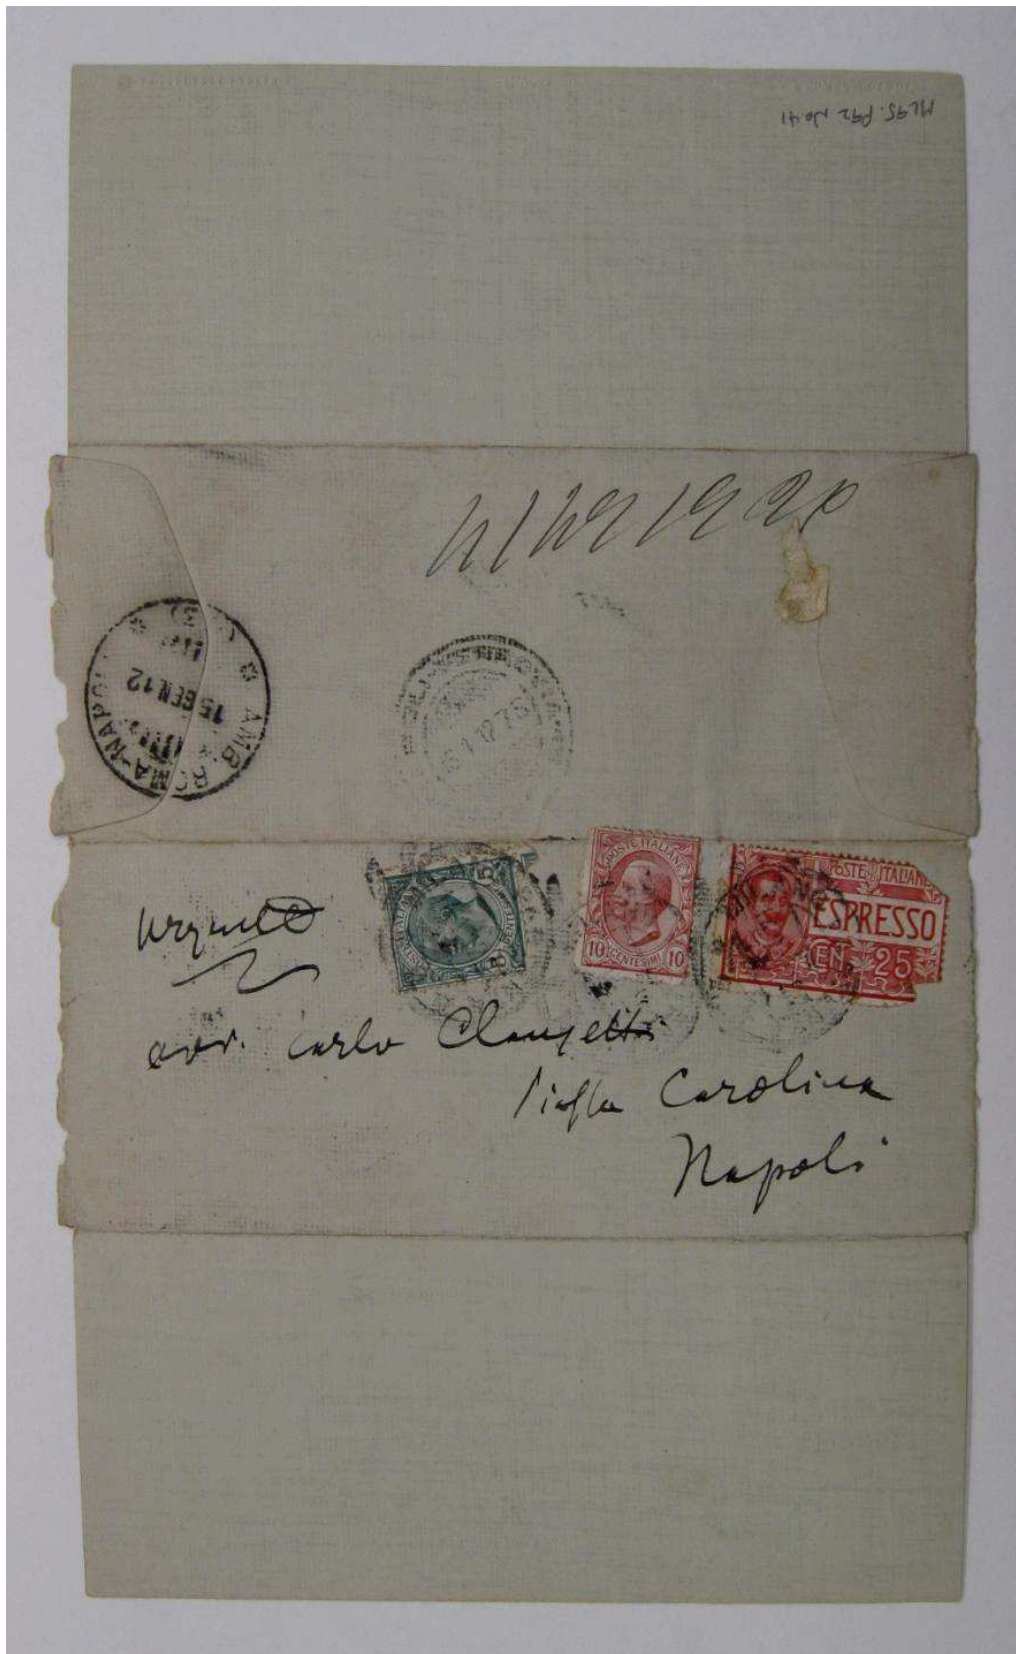 ML95.P92 No 41
AMB. ROMA-NAPOLI
15 GEN 12
urgente
POSTE ITALIANE
CENTESIMI 5
POSTE ITALIANE
10 CENTESIMI 10
POSTE ITALIANE
ESPRESSO
CEN. 25
avv. Carlo Clausetti
Piazza Carolina
Napoli